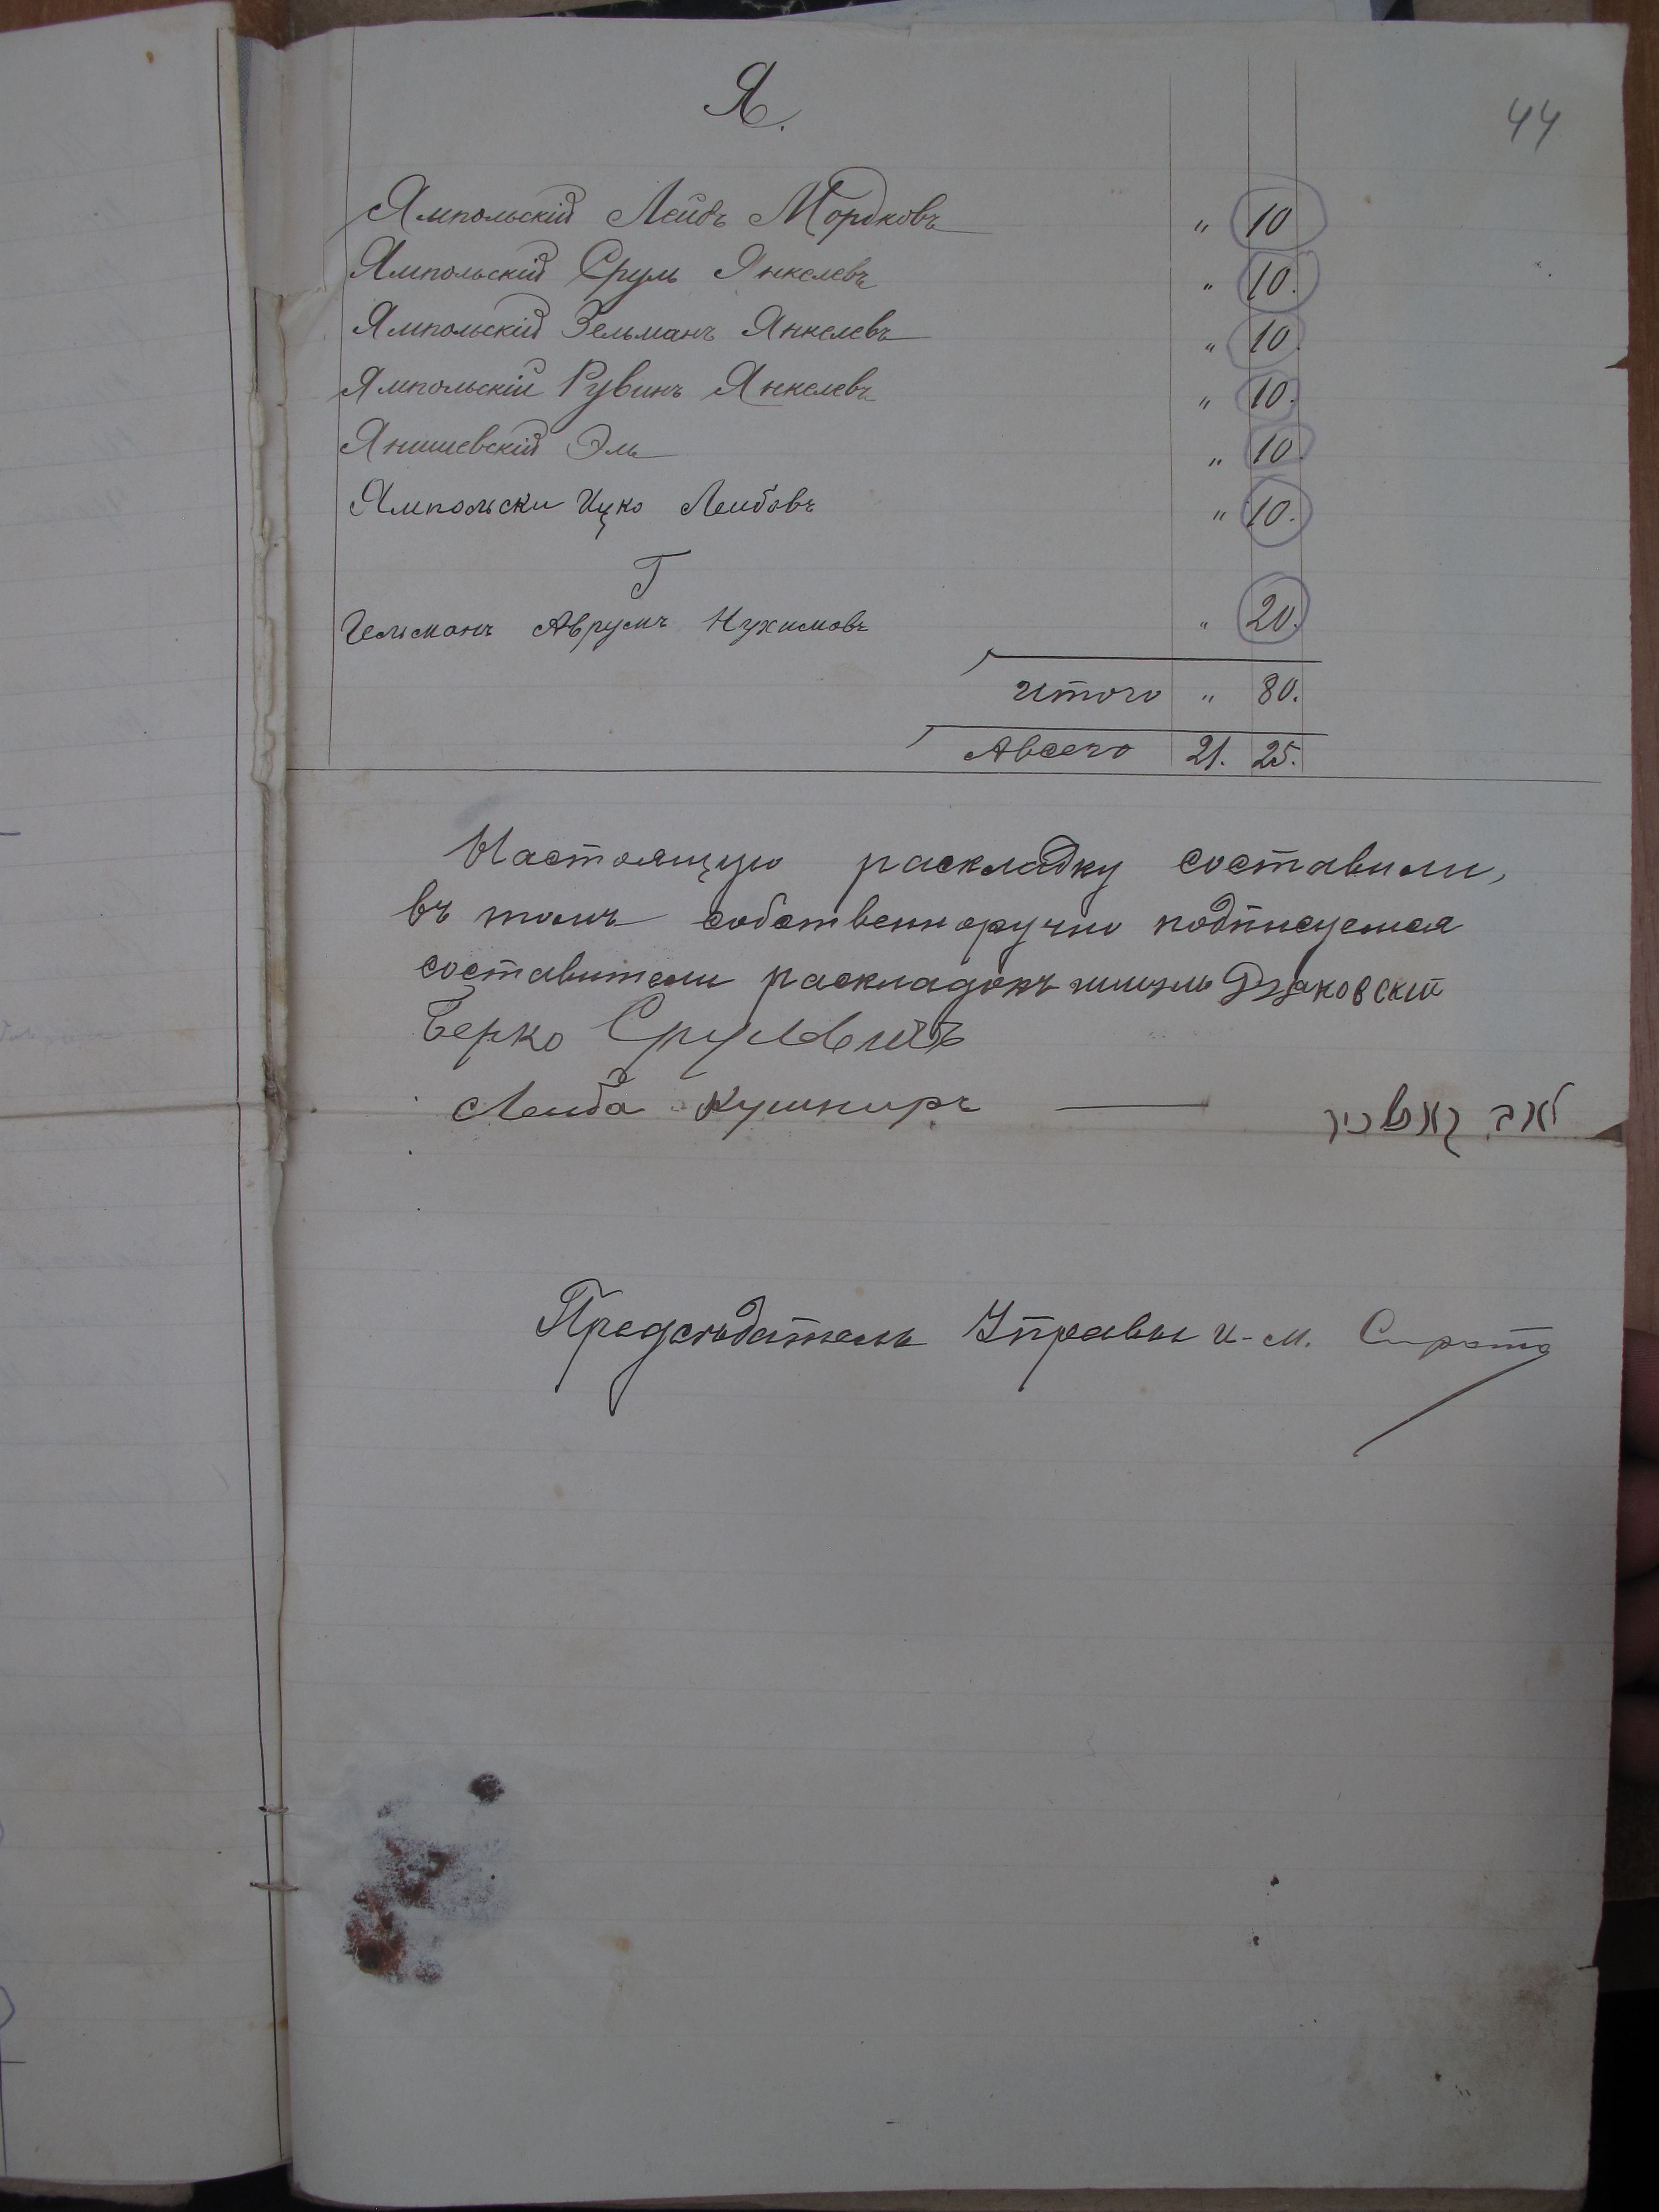 44
Я.
Ямпольскій Лейбъ Мордковъ " 10
Ямпольскій Срулъ Янкелевъ " 10.
Ямпольскій Зельманъ Янкелевъ " 10.
Ямпольскій Рувинъ Янкелевъ " 10.
Янишевскій Эль " 10.
Ямпольски Ицко Леибовъ " 10.
Г
Гельманъ Аврумъ Нухимовъ " 20.
Итого " 80.
А всего 21. 25.
Настоящую раскладку составили,
въ томъ собственноручно подписуемся
составители раскладокъ
Берко
Леиба Кушниръ —
Председатель Управы И. М. Сирота